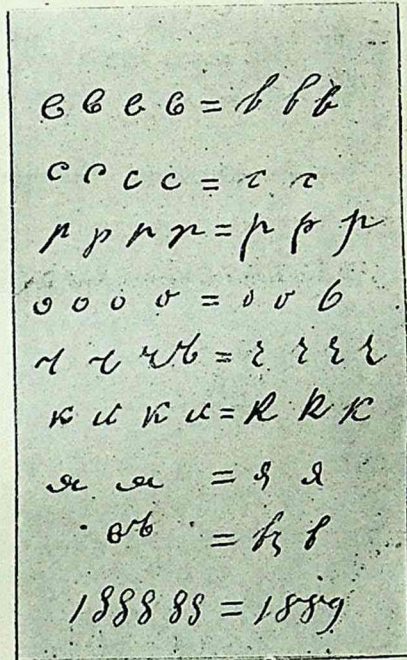 в в в в = в в в
с с с с = с с
р р р р = р р р
о о о о = о о о
ч ч ч ъ = ч ч ч ч
к к к к = к к к
я я = я я
въ = въ в
188888 = 1889